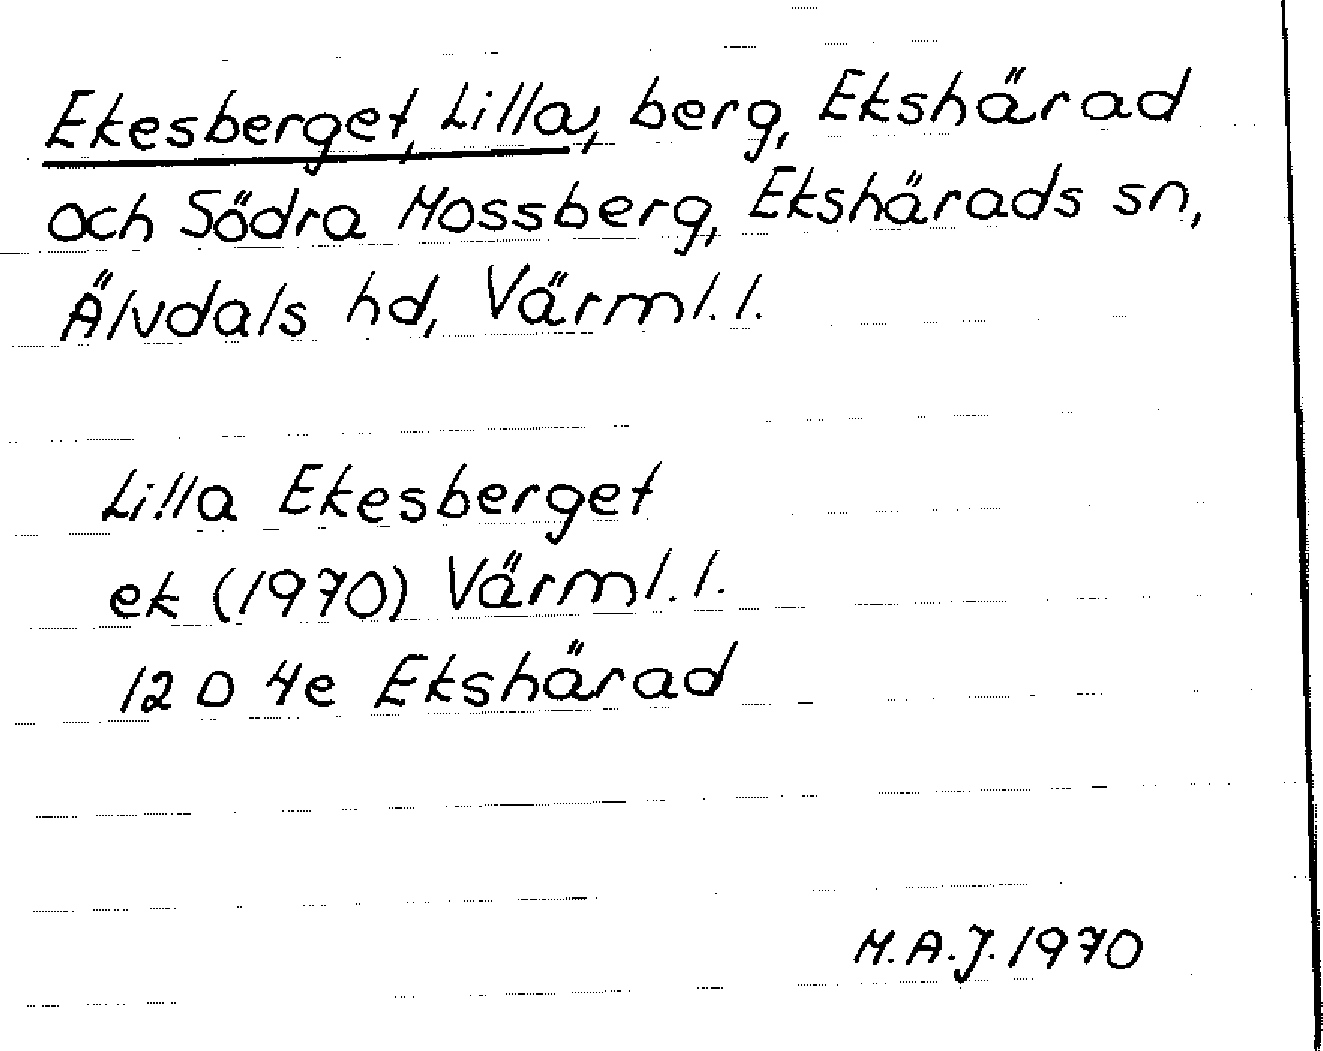 Ekesberget, Lilla, berg, Ekshärad
och Södra Mossberg, Ekshärads sn,
Älvdals hd, Värml. l.
Lilla Ekesberget
ek (1970) Värml. l.
12 D 4e Ekshärad
M.A.J. 1970